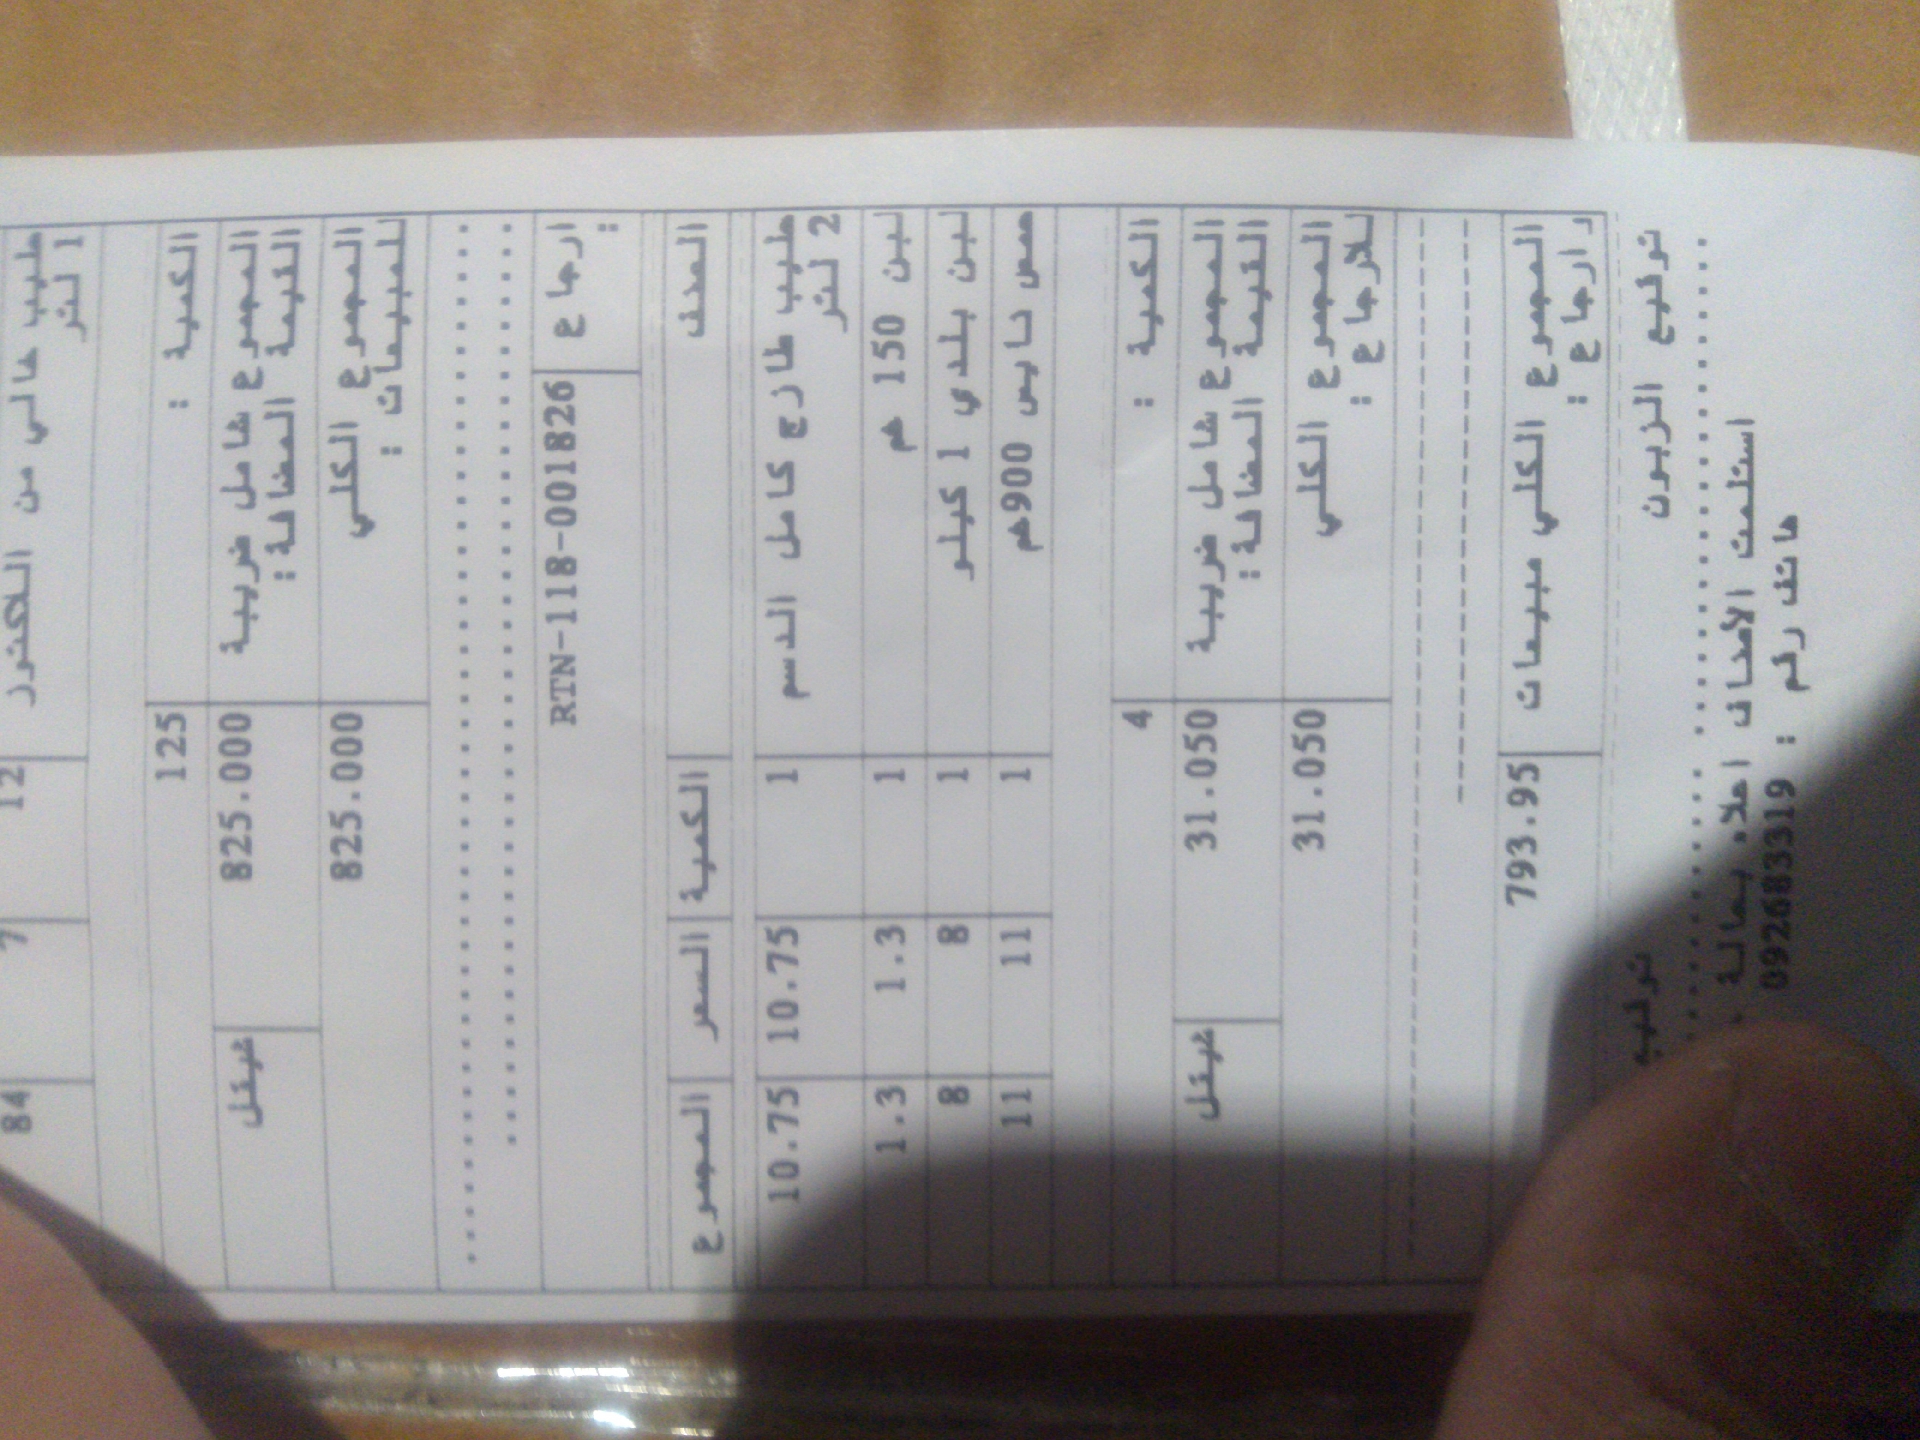 حليب خالي من اللاكتوز 1 لتر 12 7 84
الكمية : 125
المجموع شامل ضريبة القيمة المضافة: 825.000 شيقل
المجموع الكلي للمبيعات : 825.000
ارجاع : RTN-118-001826
الصنف الكمية السعر المجموع
حليب طازج كامل الدسم 2 لتر 1 10.75 10.75
لبن 150 غم 1 1.3 1.3
لبن بلدي 1 كيلو 1 8 8
حمص نابس 900غم 1 11 11
الكمية : 4
المجموع شامل ضريبة القيمة المضافة: 31.050 شيقل
المجموع الكلي للارجاع : 31.050
المجموع الكلي مبيعات و ارجاع : 793.95
توقيع الزبون
استلمت الأصناف اعلاه بحالة
هاتف رقم : 092683319